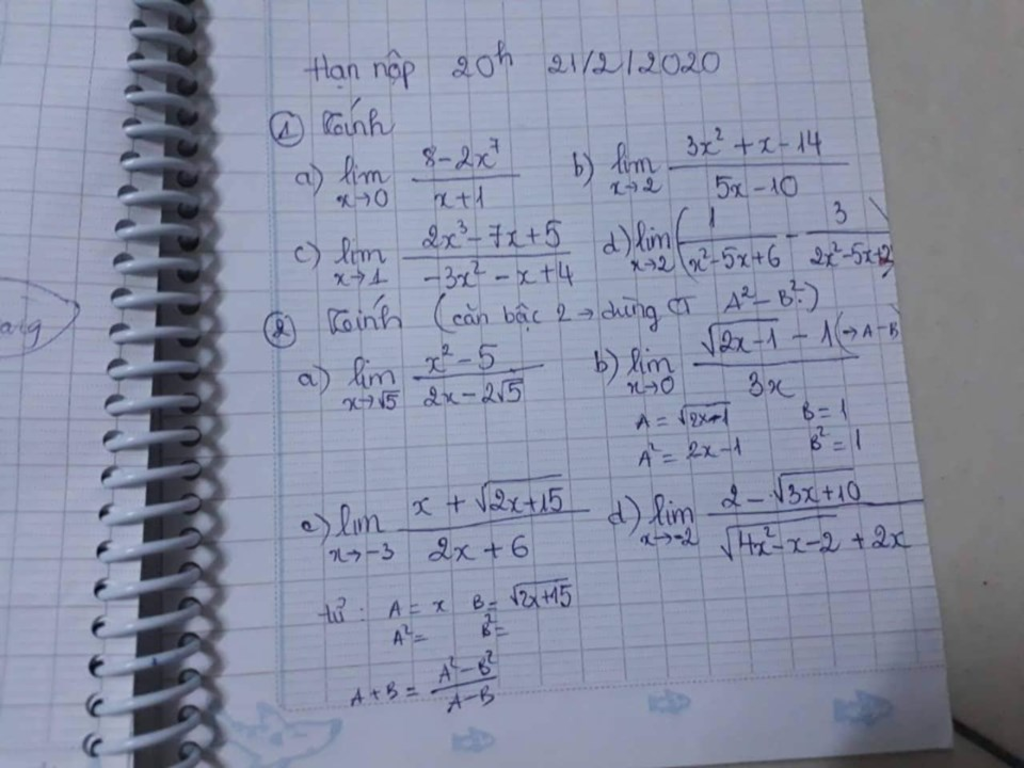 Hạn nộp 20h 21/2/2020
① Tính
a) lim x→0 (8-2x⁷)/(x+1) b) lim x→2 (3x²+x-14)/(5x-10)
c) lim x→1 (2x³-7x+5)/(-3x²-x+4) d) lim x→2 (1/(x²-5x+6) - 3/(2x²-5x+2))
② Tính (căn bậc 2 → dùng CT A²-B².)
a) lim x→√5 (x²-5)/(2x-2√5) b) lim x→0 (√(2x-1) - 1)/(3x) (→A-B)
A = √(2x-1) B = 1
A² = 2x-1 B² = 1
c) lim x→-3 (x+√(2x+15))/(2x+6) d) lim x→-2 (2-√(3x+10))/(√(4x²-x-2)+2x)
tử : A = x B = √(2x+15)
A² = B² =
A+B = (A²-B²)/(A-B)